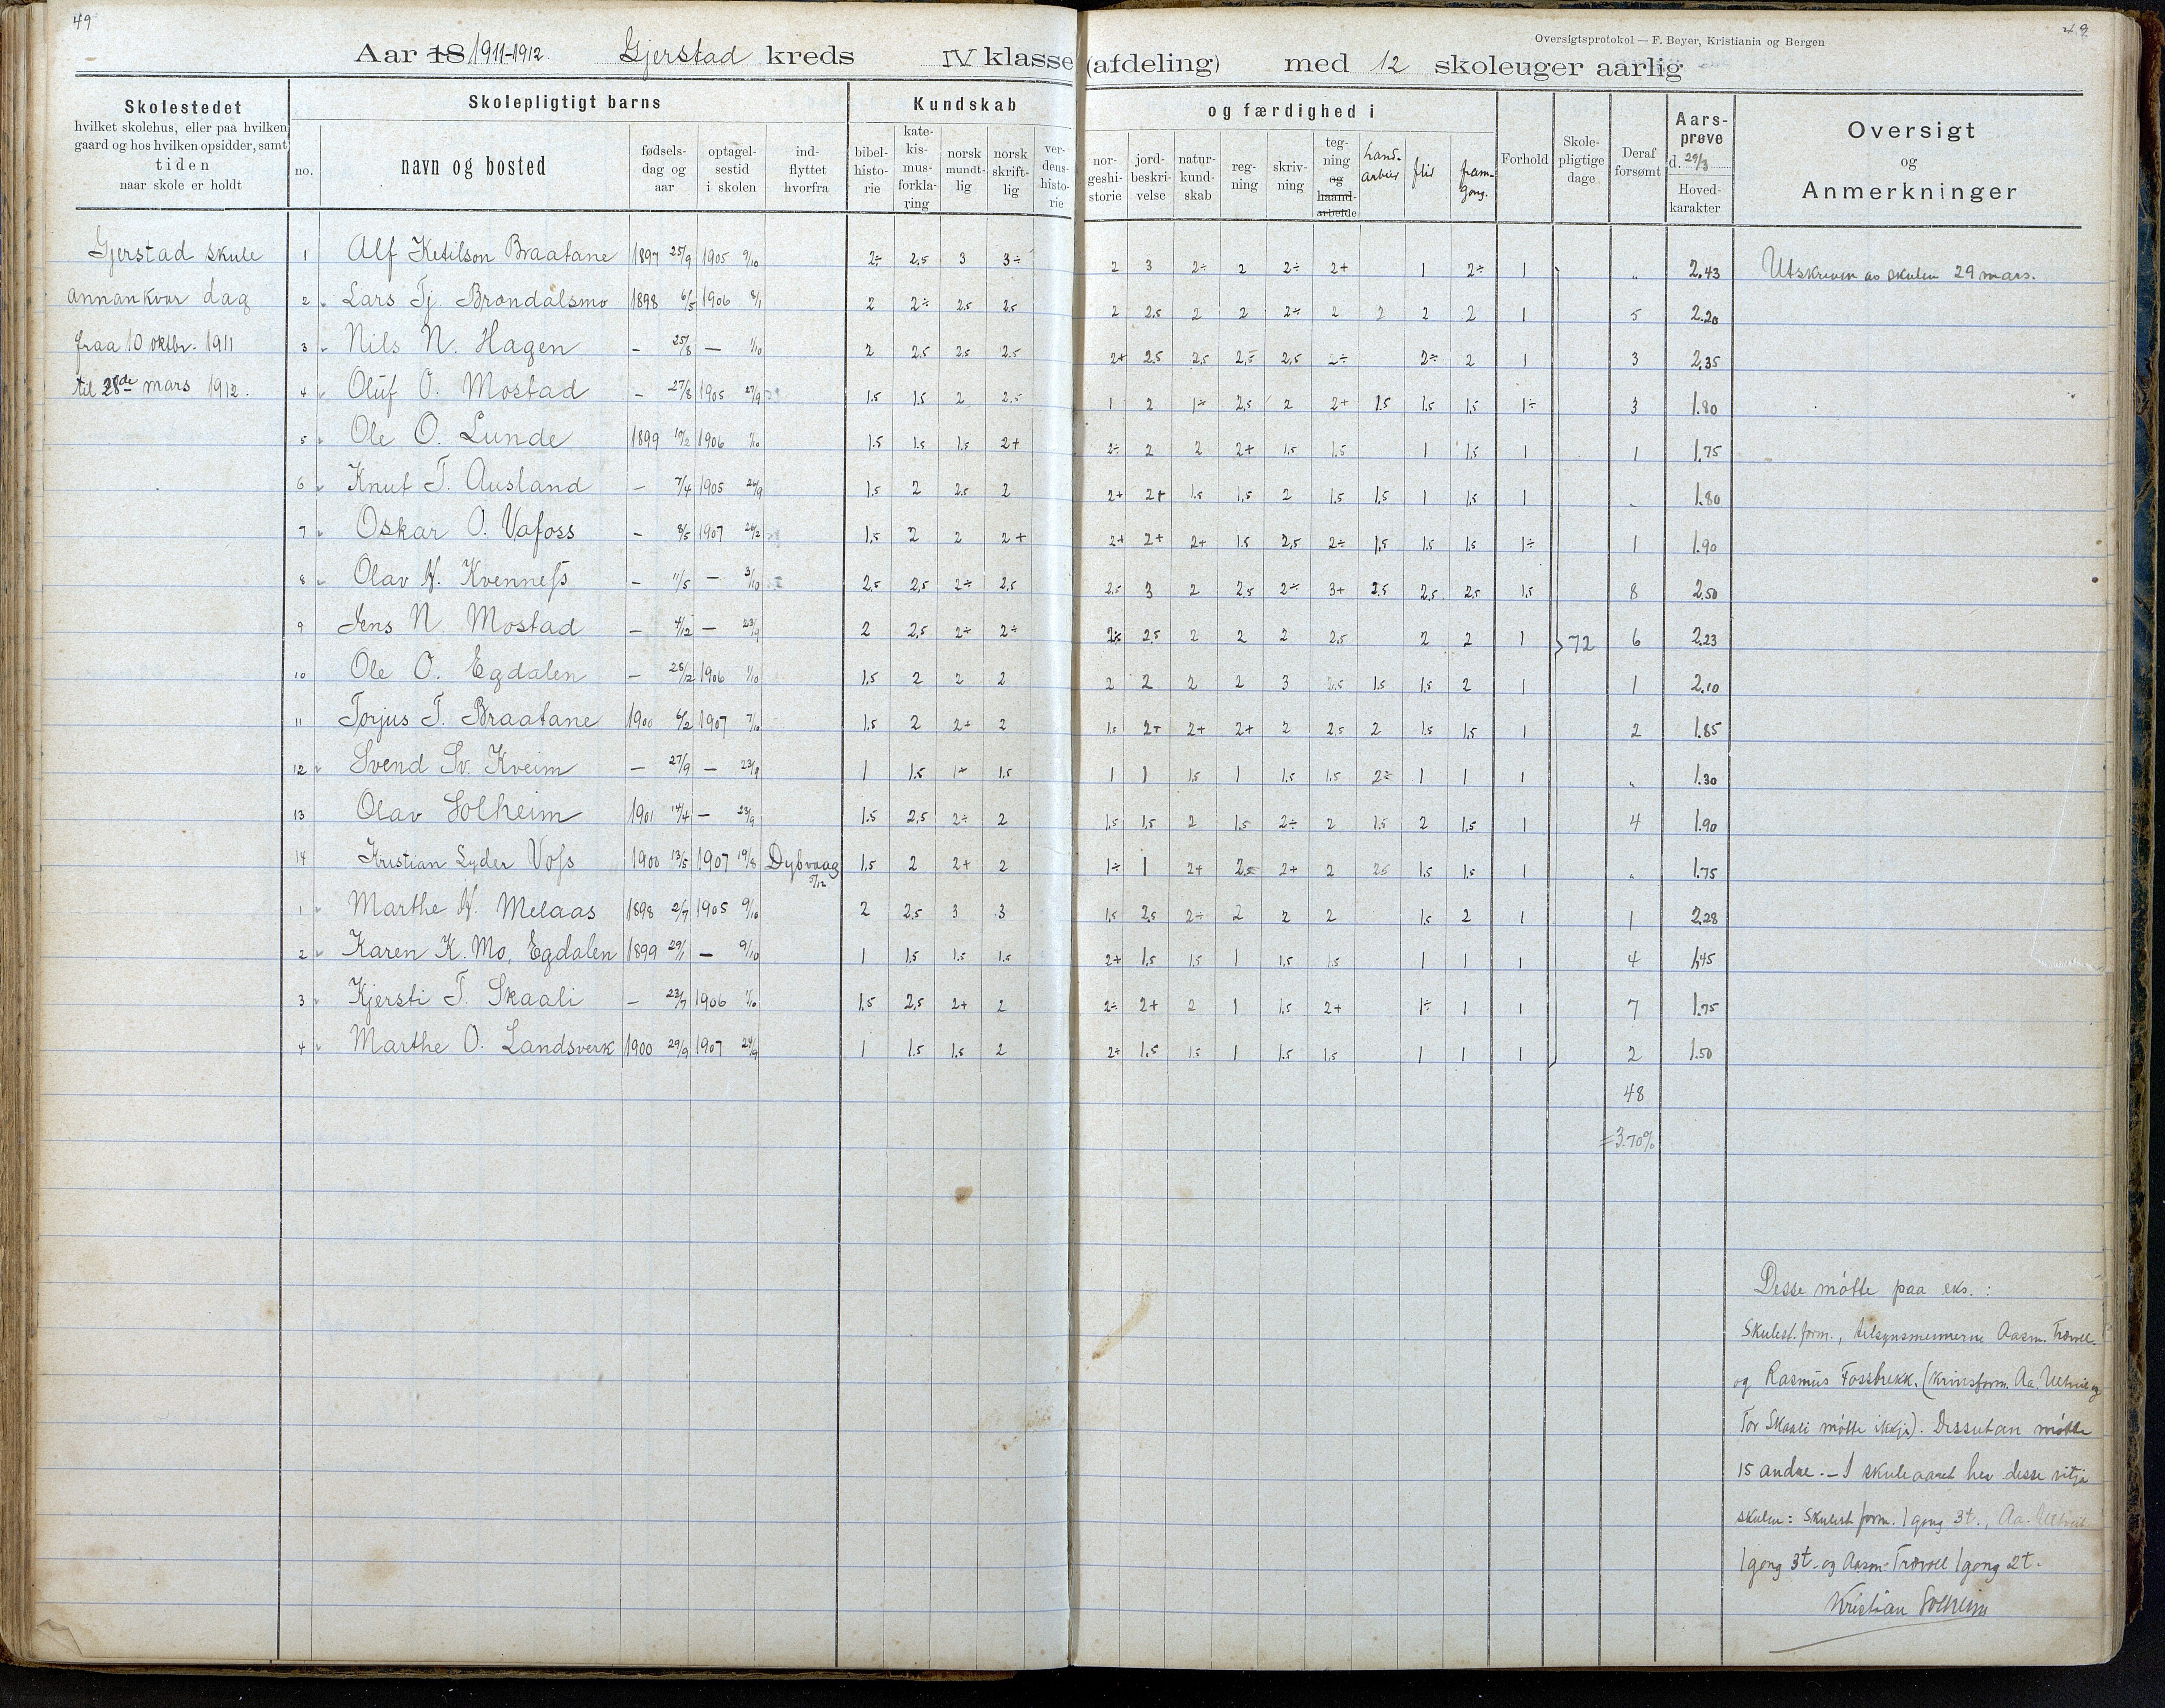 49
49
Oversigtsprotokol — F. Beyer, Kristiania og Bergen
Aar 18 1911-1912. Gjerstad kreds IV klasse (afdeling) med 12 skoleuger aarlig
Skolestedet
hvilket skolehus, eller paa hvilken
gaard og hos hvilken opsidder, samt
tiden
naar skole er holdt
Skolepligtigt barns
no. navn og bosted
fødsels-dag og aar
optagel-sestid i skolen
ind-flyttet hvorfra
Kundskab og færdighed i
bibel-histo-rie
kate-kis-mus-forkla-ring
norsk mundt-lig
norsk skrift-lig
ver-dens-histo-rie
nor-geshi-storie
jord-beskri-velse
natur-kund-skab
reg-ning
skriv-ning
teg-ning og haand-arbeide
hand-arbeid
flid
fram-gong.
Forhold
Skole-pligtige dage
Deraf forsømt
Aars-prøve d. 29/3 Hoved-karakter
Oversigt og Anmerkninger
Gjerstad skule
annankvar dag
fraa 10 oktbr. 1911
til 28de mars 1912.
1 Alf Ketilson Braatane 1897 25/9 1905 9/10 2÷ 2,5 3 3÷ 2 3 2÷ 2 2÷ 2+ 1 2÷ 1 „ 2,43 Utskreven av skulen 29 mars.
2 Lars Tj. Brøndalsmo 1898 6/5 1906 8/1 2 2÷ 2,5 2,5 2 2,5 2 2 2÷ 2 2 2 2 1 5 2.20
3 Nils N. Hagen – 25/8 – 1/10 2 2,5 2,5 2,5 2+ 2,5 2,5 2,5 2,5 2÷ 2÷ 2 1 3 2,35
4 Oluf O. Mostad – 27/8 1905 27/9 1.5 1.5 2 2.5 1 2 1÷ 2,5 2 2+ 1.5 1.5 1.5 1÷ 3 1.80
5 Ole O. Lunde 1899 1906 1/10 1.5 1.5 1.5 2+ 2÷ 2 2 2+ 1.5 1.5 1 1.5 1 1 1.75
6 Knut T. Ausland – 7/4 1905 26/9 1.5 2 2.5 2 2+ 2+ 1.5 1.5 2 1.5 1.5 1 1.5 1 „ 1.80
7 Oskar O. Vafoss – 8/5 1907 1.5 2 2 2+ 2+ 2+ 2+ 1.5 2,5 2÷ 1.5 1.5 1.5 1÷ 1 1.90
8 Olav N. Kvennefs – 11/5 – 3/10 2.5 2,5 2÷ 2,5 2.5 3 2 2.5 2÷ 3+ 2.5 2,5 2,5 1.5 8 2.50
9 Jens N. Mostad – 4/12 – 23/9 2 2,5 2÷ 2÷ 2÷ 2.5 2 2 2 2.5 2 2 1 72 6 2.23
10 Ole O. Egdalen – 28/12 1906 1/10 1.5 2 2 2 2 2 2 2 3 2.5 1.5 1.5 2 1 1 2.10
11 Torjus T. Braatane 1900 6/2 1907 7/10 1.5 2 2+ 2 1.5 2+ 2+ 2+ 2 2,5 2 1.5 1.5 1 2 1.85
12 Svend Sv. Kveim – 27/9 – 23/9 1 1.5 1÷ 1.5 1 1 1.5 1 1.5 1.5 2÷ 1 1 1 „ 1.30
13 Olav Solheim 1901 14/4 – 23/9 1.5 2,5 2÷ 2 1.5 1.5 2 1.5 2÷ 2 1.5 2 1.5 1 4 1.90
14 Kristian Lyder Vofs 1900 13/5 1907 19/8 Dybvaag 5/12 1.5 2 2+ 2 1÷ 1 2+ 2,5 2+ 2 2.5 1.5 1.5 1 „ 1.75
1 Marthe N. Melaas 1898 2/7 1905 9/10 2 2,5 3 3 1.5 2,5 2÷ 2 2 2 1.5 2 1 1 2.28
2 Karen K. Mo, Egdalen 1899 29/1 – 9/10 1 1.5 1.5 1.5 2+ 1.5 1.5 1 1.5 1.5 1 1 1 4 1,45
3 Kjersti T. Skaali – 23/7 1906 1/10 1.5 2,5 2+ 2 2÷ 2+ 2 1 1.5 2+ 1÷ 1 1 7 1.75
4 Marthe O. Landsverk 1900 29/9 1907 24/9 1 1.5 1.5 2 2÷ 1.5 1.5 1 1.5 1.5 1 1 1 2 1.50
48
=3.70%
Desse møtte paa eks. :
Skulest. form., tilsynsmennerne Aasm. Trævoll.
og Rasmus Fossbrekk. (Krinsform. Aa. Ulltveit og
Tor Skaali møtte ikkje). Dessutan møtte
15 andre. – I skuleaaret hev desse vitja
skulen: Skulest. form. 1 gong 3t., Aa. Ulltveit
1 gong 3t. og Aasm. Trævoll 1 gong 2t.
Kristian Solheim